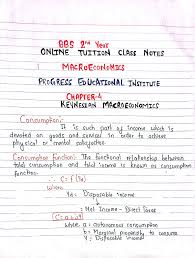 BBS 2nd Year
ONLINE TUITION CLASS NOTES
MACROECONOMICS
PROGRESS EDUCATIONAL INSTITUTE
CHAPTER-4
KEYNESIAN MACROECONOMICS
Consumption:
It is such part of income which is
devoted on goods and services in order to achieve
physical or mental satisfaction.
Consumption function: The functional relationship between
total consumption and total income is known as consumption
function.
∴ C = f(Yd)
Where,
Yd = Disposable income
= Net Income - Direct Taxes
C = a + bY
where, a = Autonomous consumption
b = Marginal propensity to consume
Y = Disposable income